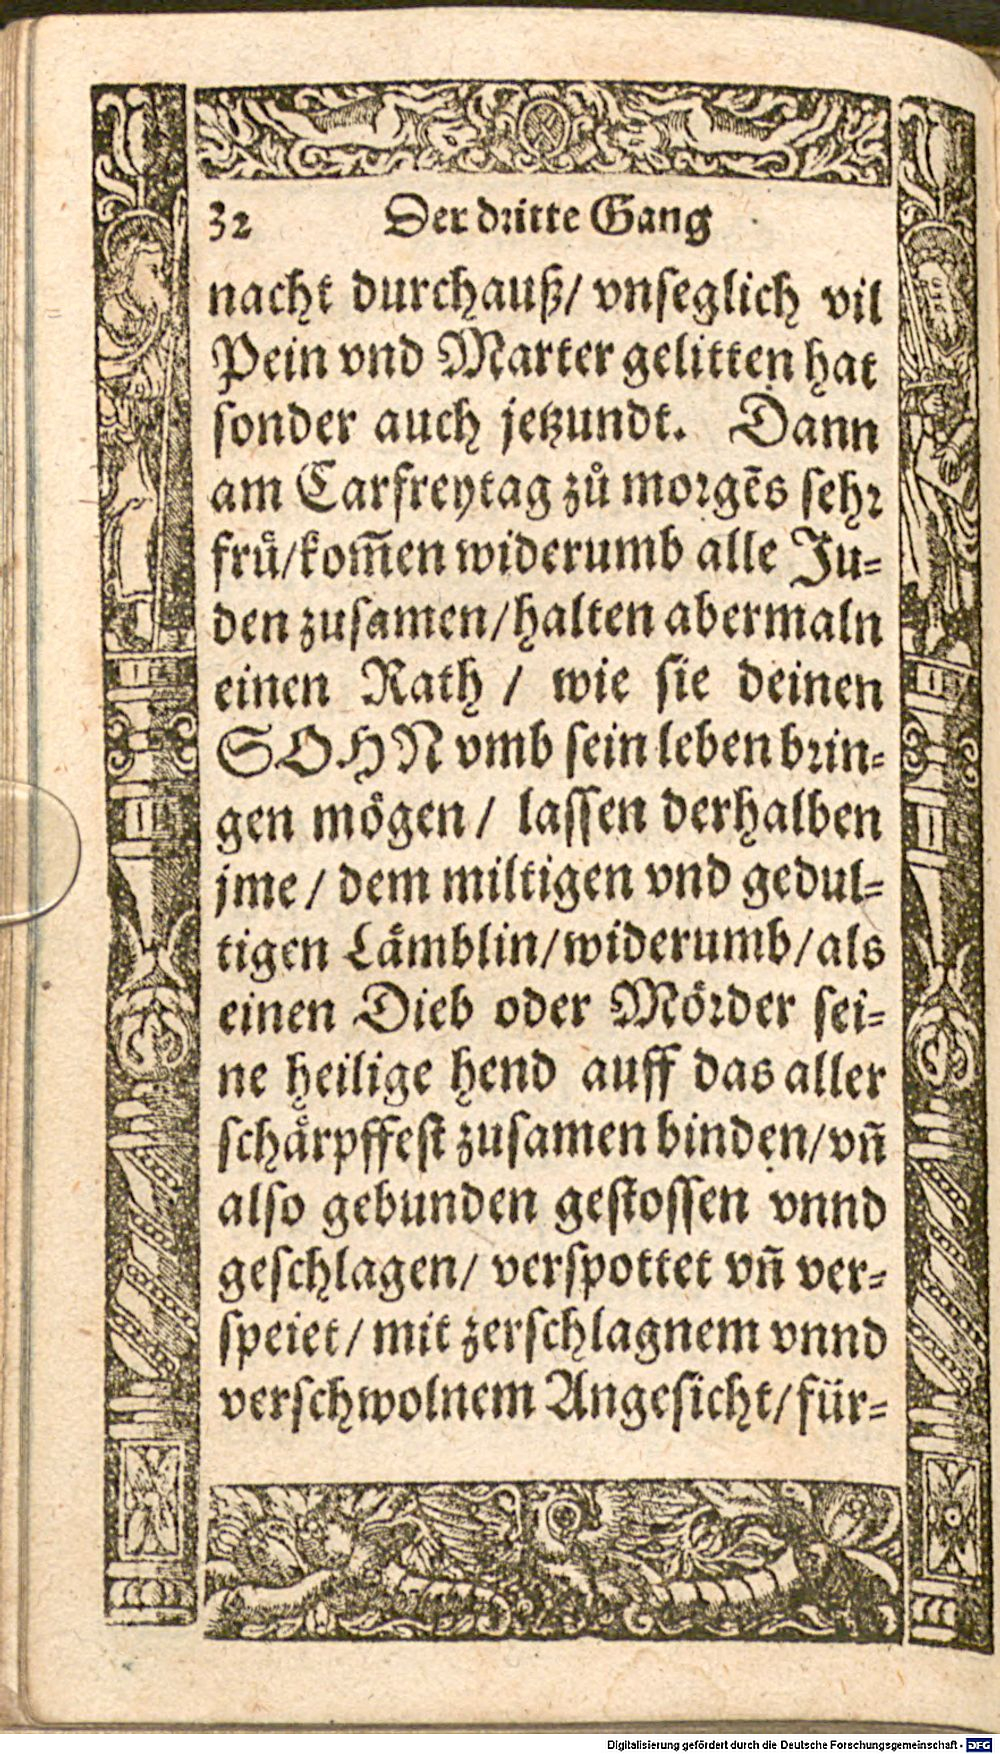 32 Der dritte Gang
nacht durchauß/ vnseglich vil
Pein vnd Marter gelitten hat
sonder auch jetzundt. Dann
am Carfreytag zů morgẽs sehr
frů/kom̃en widerumb alle Ju=
den zusamen/halten abermaln
einen Rath / wie sie deinen
SOHN vmb sein leben brin=
gen mögen/ lassen derhalben
jme / dem miltigen vnd gedul=
tigen Lämblin/widerumb/als
einen Dieb oder Mörder sei=
ne heilige hend auff das aller
schärpffest zusamen binden/vñ
also gebunden gestossen vnnd
geschlagen/ verspottet vñ ver=
speiet/ mit zerschlagnem vnnd
verschwolnem Angesicht/für=
Digitalisierung gefördert durch die Deutsche Forschungsgemeinschaft - DFG